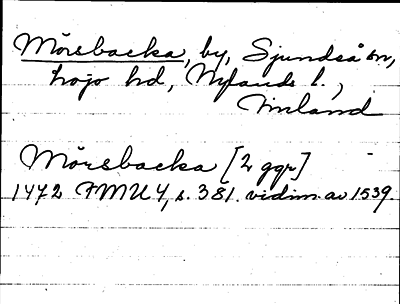 Mörsbacka, by, Sjundeå sn,
Lojo hd, Nylands l.,
Finland
Mörsbacka [2 ggr]
1472 FMU 4, s. 381. vidim. av 1539.